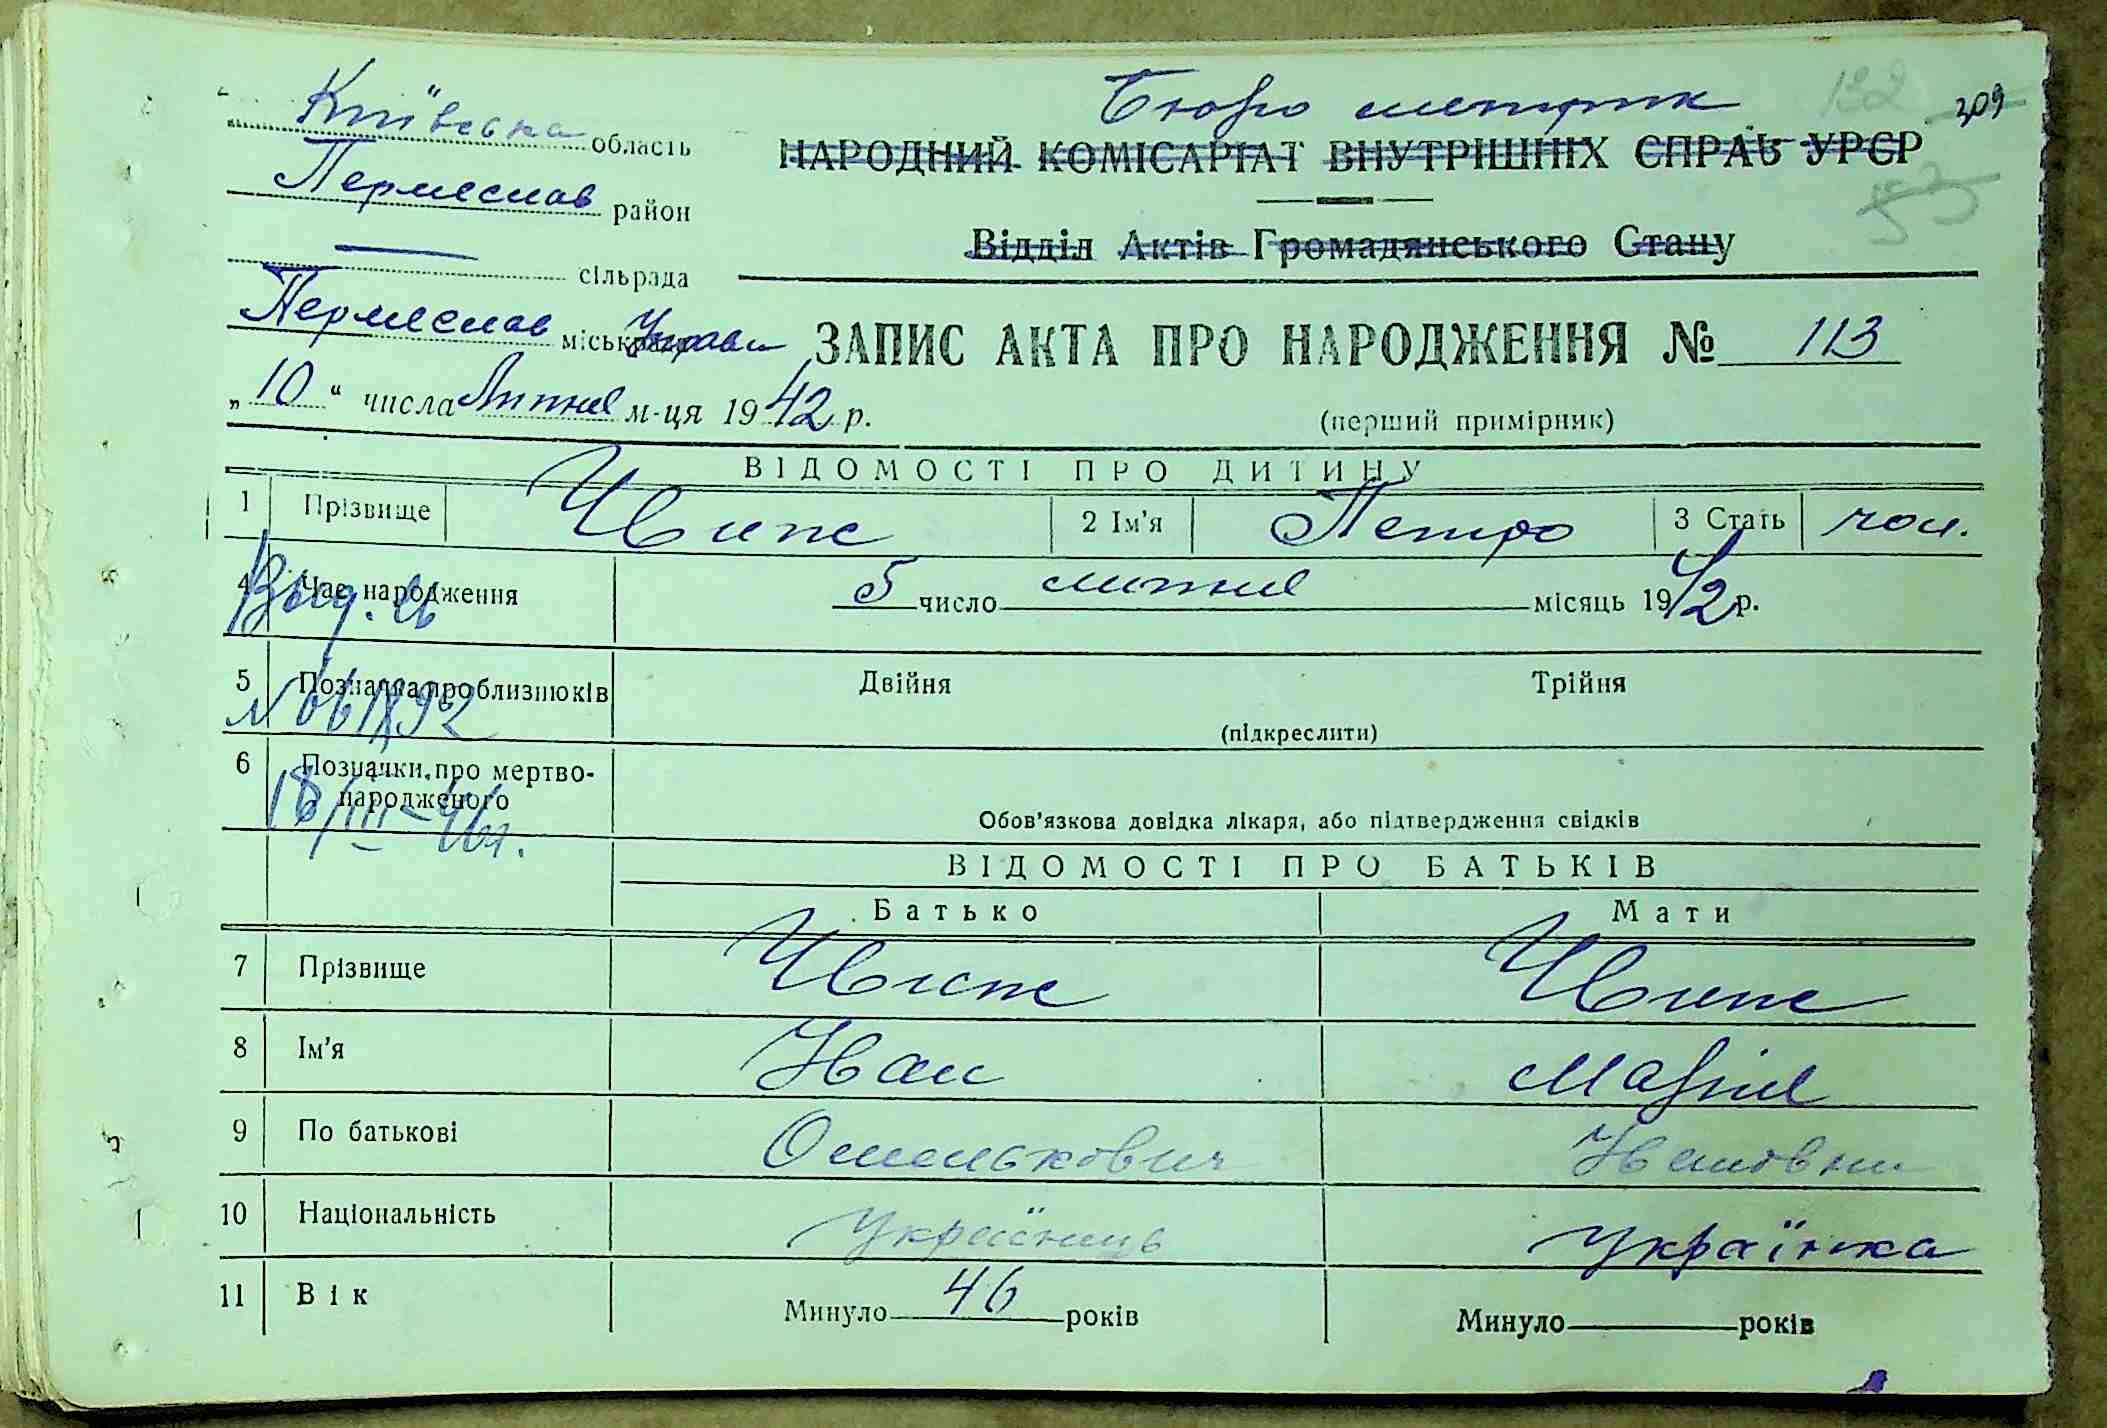 Бюро метрик 132 209
Київська область
НАРОДНИЙ КОМІСАРІАТ ВНУТРІШНІХ СПРАВ УРСР
Переяслав район
Відділ Актів Громадянського Стану
сільрада
Переяслав міськрада Управи
ЗАПИС АКТА ПРО НАРОДЖЕННЯ № 113
„10“ числа Липня м-ця 1942 р.
(перший примірник)
ВІДОМОСТІ ПРО ДИТИНУ
1 Прізвище Чвипс 2 Ім'я Петро 3 Стать чол.
4 Час народження 5 число липня місяць 1942 р.
Выд. св
5 Позначка про близнюків Двійня Трійня
(підкреслити)
6 Позначки про мертвонародженого
18/III-46г.
Обов'язкова довідка лікаря, або підтвердження свідків
ВІДОМОСТІ ПРО БАТЬКІВ
Батько Мати
7 Прізвище
8 Ім'я Іван Марія
9 По батькові Омелькович Івановна
10 Національність Українець Українка
11 Вік Минуло 46 років Минуло років